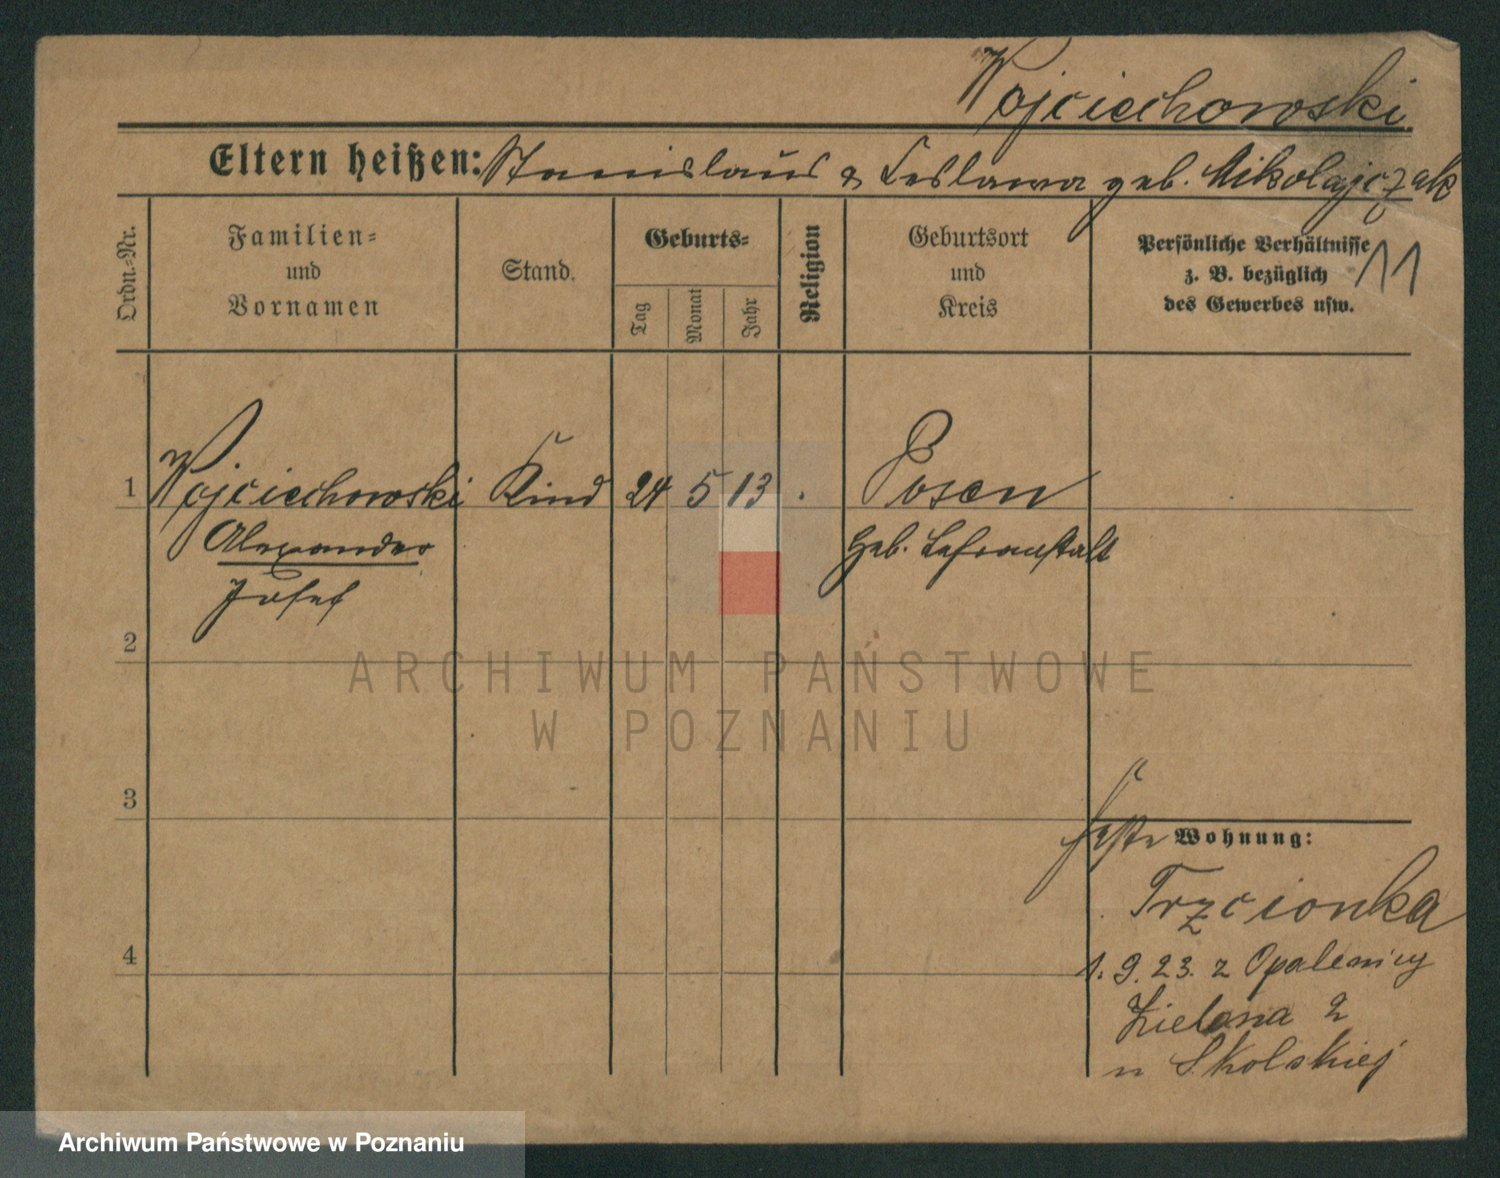 Wojciechowski
Eltern heißen: Stanislaus & Leslawa geb. Mikolajczak
Ordn.-Nr.
Familien- und Vornamen
Stand.
Geburts-
Tag
Monat
Jahr
Religion
Geburtsort und Kreis
Persönliche Verhältnisse
z. B. bezüglich
des Gewerbes usw.
11
1 Wojciechowski Kind 24 5 13 . Posen
Alexander
Josef
Heb. Lehranstalt
2
3
4
Wohnung:
Trzcionka
1. 9. 23. z Opalenicy
Zielona 2
u Skolskiej
ARCHIWUM PAŃSTWOWE
W POZNANIU
Archiwum Państwowe w Poznaniu